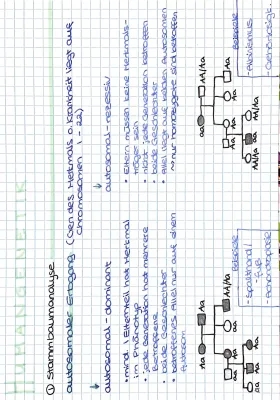 HUMANGENETIK
① Stammbaumanalyse
autosomaler Erbgang (Gen des Merkmals o. Krankheit liegt auf
Chromosomen 1-22)
autosomal-dominant
• mind. 1 Elternteil hat Merkmal
im Phänotyp
• jede Generation hat mehrere
Betroffene
• beide Geschlechter
• betroffenes Allel nur auf einem
Autosom
Aa
aa
Aa
aa
Aa
AA/Aa
aa
Aa
Beispiele
- Spalthand/
-fuß
- Achondroplasie
autosomal-rezessiv
• Eltern müssen keine Merkmals-
träger sein
• nicht jede Generation betroffen
• beide Geschlechter
• Allel liegt auf beiden Autosomen
→ nur homozygote sind betroffen
aa
AA/Aa
Aa
Aa
Aa
aa
AA/Aa
Beispiele
- Albinismus